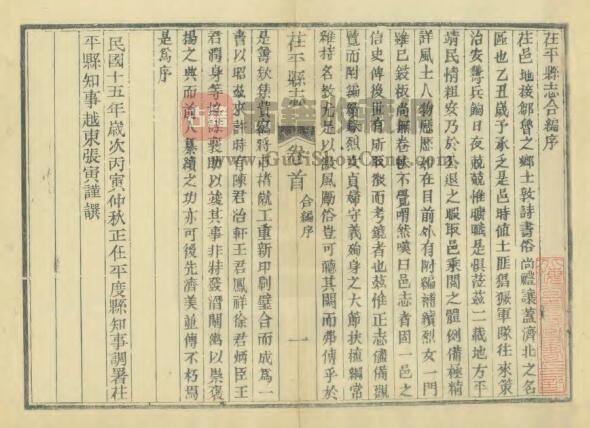 茌平縣志合編序
茌邑地接鄒魯之鄉士敦詩書俗尚禮讓蓋濟北之名
區也乙丑歲予承乏是邑時值土匪猖獗軍隊往來策
治安籌兵餉日夜兢兢惟曠職是懼蒞茲二載地方平
靖民情粗安乃於公退之暇取邑乘閱之體例備極精
詳風土人物歷歷如在目前外有附編補續烈女一門
雖已鋟板尚無卷帙不覺喟然嘆曰邑志者固一邑之
信史傳後世有所取徵而考鏡者也茲惟正志儘備觀
覽而附編節烈女貞婦守義殉身之大節扶植綱常
維持名教尤是以激風勵俗豈可聽其闕而弗傳乎於
茌平縣志 卷首 合編序 一
是籌欵集貲鳩將市楮就工重新印刷璧合而成為一
書以昭茲來許時有陳君治軒王君鳳祥徐君炳臣王
君潤身等協謀襄助以竣其事非特發潛闡幽以崇褒
揚之典而前人纂續之功亦可後先濟美並傳不朽焉
是為序
民國十五年歲次丙寅仲秋正任平度縣知事調署茌
平縣知事越東張寅謹譔
www.GuJiShuGuan.com